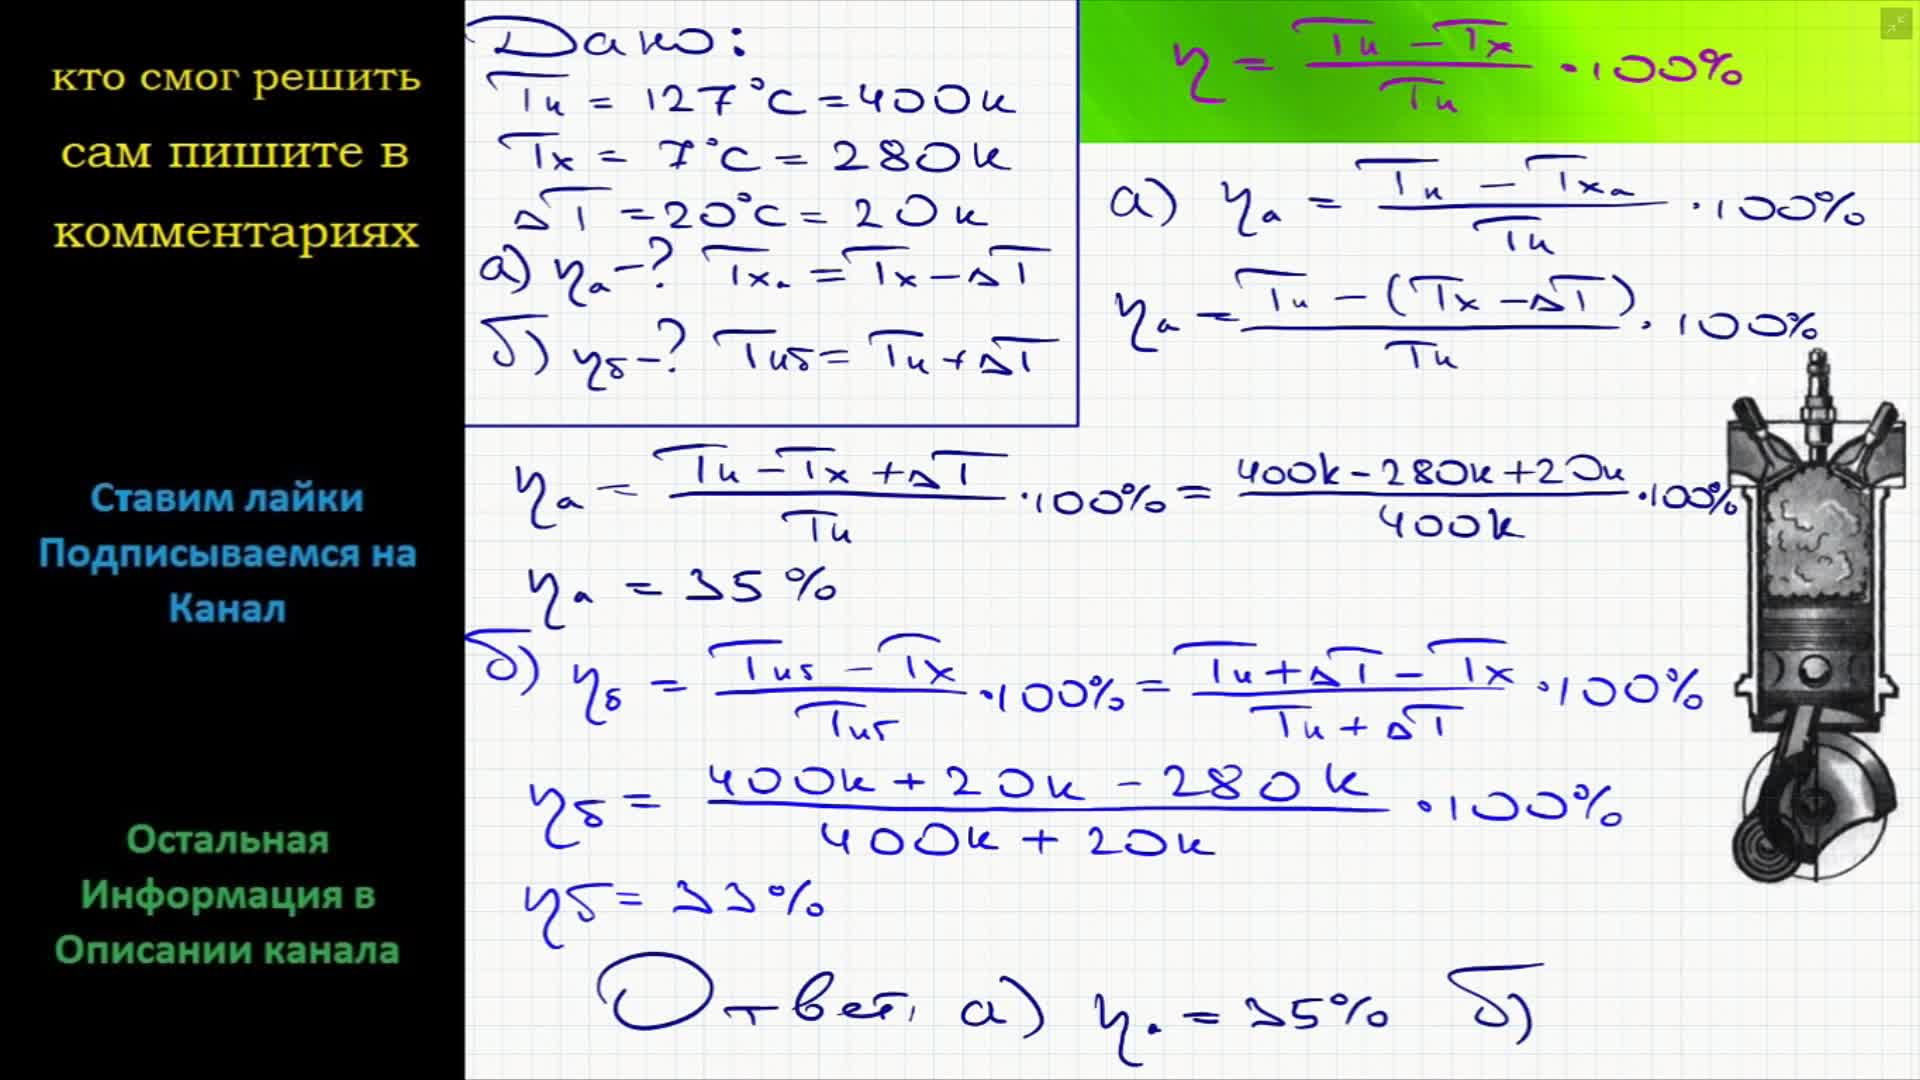 кто смог решить
сам пишите в
комментариях
Ставим лайки
Подписываемся на
Канал
Остальная
Информация в
Описании канала
Дано:
Tн = 127°C = 400к
Tх = 7°C = 280к
ΔT = 20°C = 20к
а) ηа - ? Tха = Tх - ΔT
б) ηб - ? Tнб = Tн + ΔT
η = (Tн - Tх) / Tн · 100%
а) ηа = (Tн - Tха) / Tн · 100%
ηа = (Tн - (Tх - ΔT)) / Tн · 100%
ηа = (Tн - Tх + ΔT) / Tн · 100% = (400к - 280к + 20к) / 400к · 100%
ηа = 35%
б) ηб = (Tнб - Tх) / Tнб · 100% = (Tн + ΔT - Tх) / (Tн + ΔT) · 100%
ηб = (400к + 20к - 280к) / (400к + 20к) · 100%
ηб = 33%
Ответ, а) ηа = 35% б)